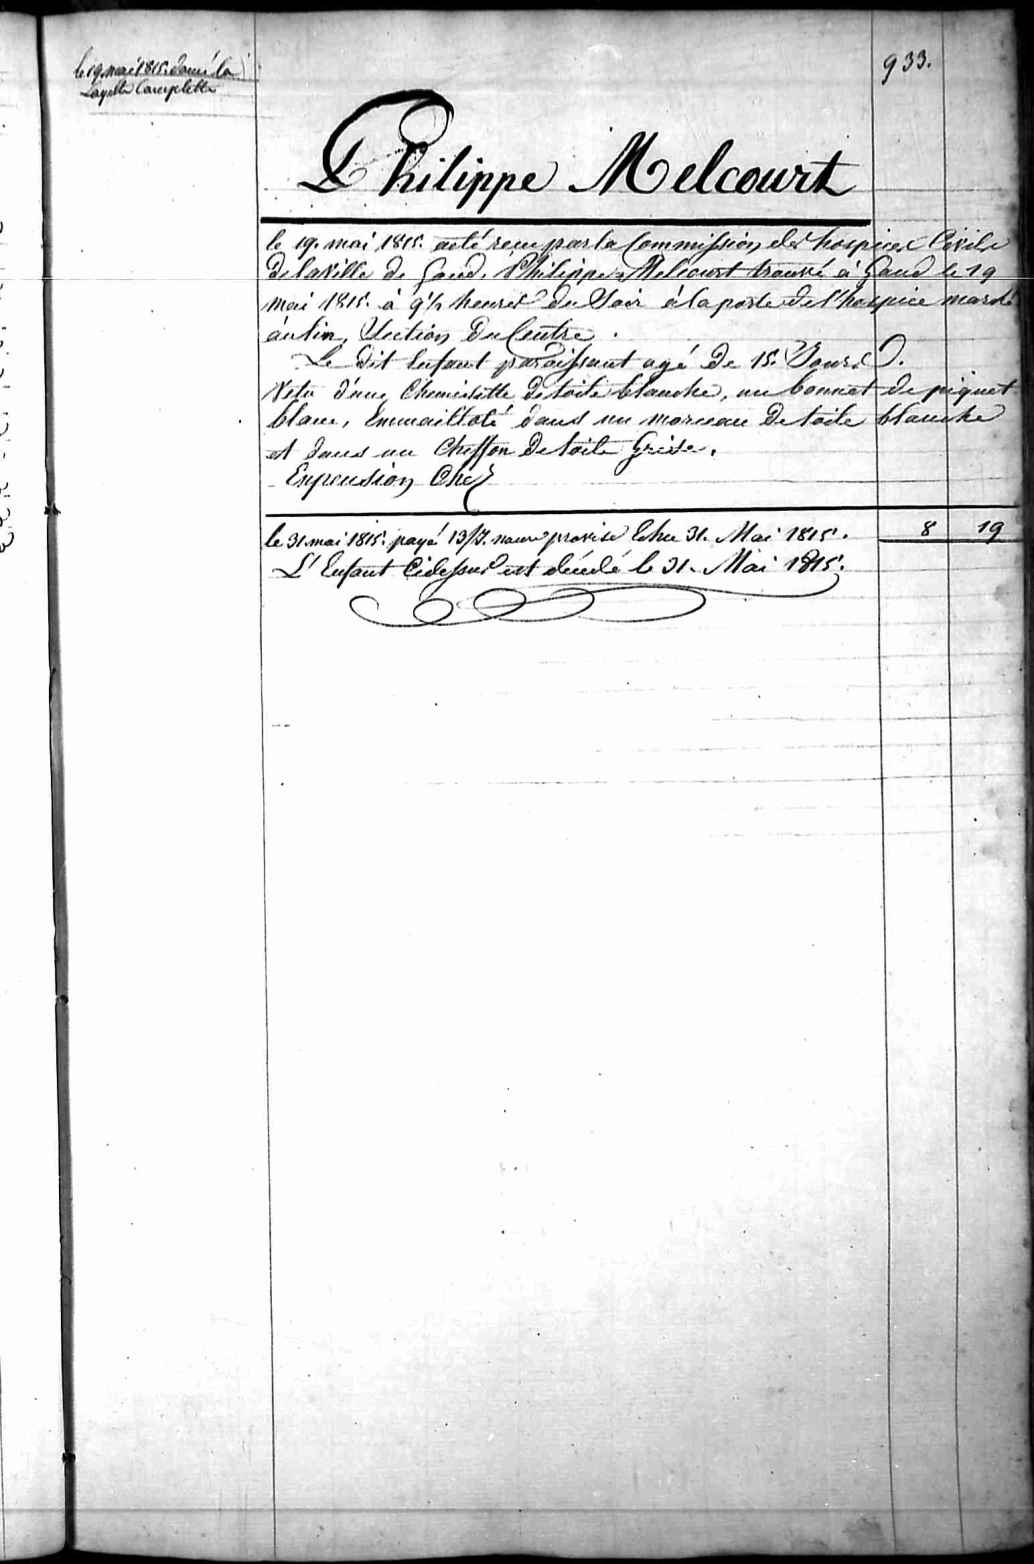 le 19 mai 1815. donné la
Layette Complette
933.
Philippe Melcourt
le 19. mai 1815. a été recu par la Commission des hospices Civils
de la Ville de Gand. Philippe Melcourt trouvé à Gand le 19
mai 1815. à 9½ heures du Soir à la porte de l'hospice marché
au lin, Section Du Centre.
Le dit Enfant paroissant agé de 15. Jours.
Vetu d'une Chemisette de toile blanche, un bonnet de piquet
blanc, Emmailloté dans un morceau de toile blanche
et dans un Chiffon de toile Grise.
En pension Chez
le 31. mai 1815. payé 13/7. Echu 31. Mai 1815. 8 19
L'Enfant Cidessus est décédé le 31. Mai 1815.